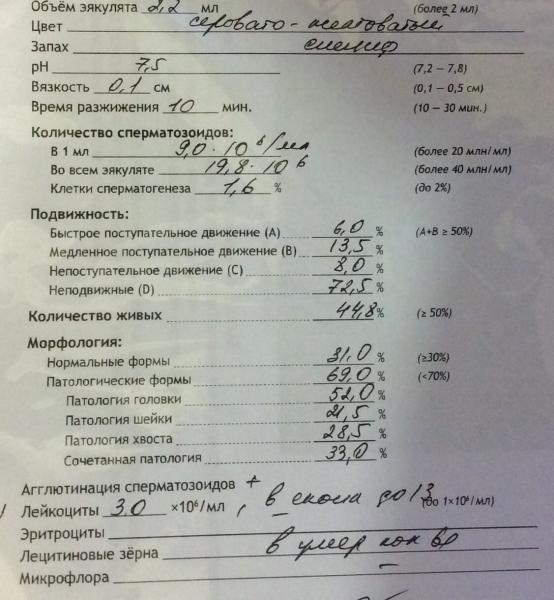 Объём эякулята 2,2 мл (более 2 мл)
Цвет серовато-желтоватый
Запах специф
pH 7,5 (7,2 – 7,8)
Вязкость 0,1 см (0,1 – 0,5 см)
Время разжижения 10 мин. (10 – 30 мин.)
Количество сперматозоидов:
В 1 мл 9,0·10⁶/мл (более 20 млн/мл)
Во всем эякуляте 19,8·10⁶ (более 40 млн/мл)
Клетки сперматогенеза 1,6 % (до 2%)
Подвижность:
Быстрое поступательное движение (А) 6,0 % (А+В ≥ 50%)
Медленное поступательное движение (В) 13,5 %
Непоступательное движение (С) 8,0 %
Неподвижные (D) 72,5 %
Количество живых 44,8% (≥ 50%)
Морфология:
Нормальные формы 31,0 % (≥30%)
Патологические формы 69,0 % (<70%)
Патология головки 52,0 %
Патология шейки 21,5 %
Патология хвоста 28,5 %
Сочетанная патология 33,0 %
Агглютинация сперматозоидов +
Лейкоциты 3,0 ×10⁶/мл, в скопл до 13 (до 1×10⁶/мл)
Эритроциты –
Лецитиновые зёрна в умер кол во
Микрофлора –